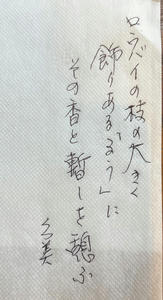 ロウバイの枝の大きく
飾りある「るう」に
その香と暫しを憩ふ
久美